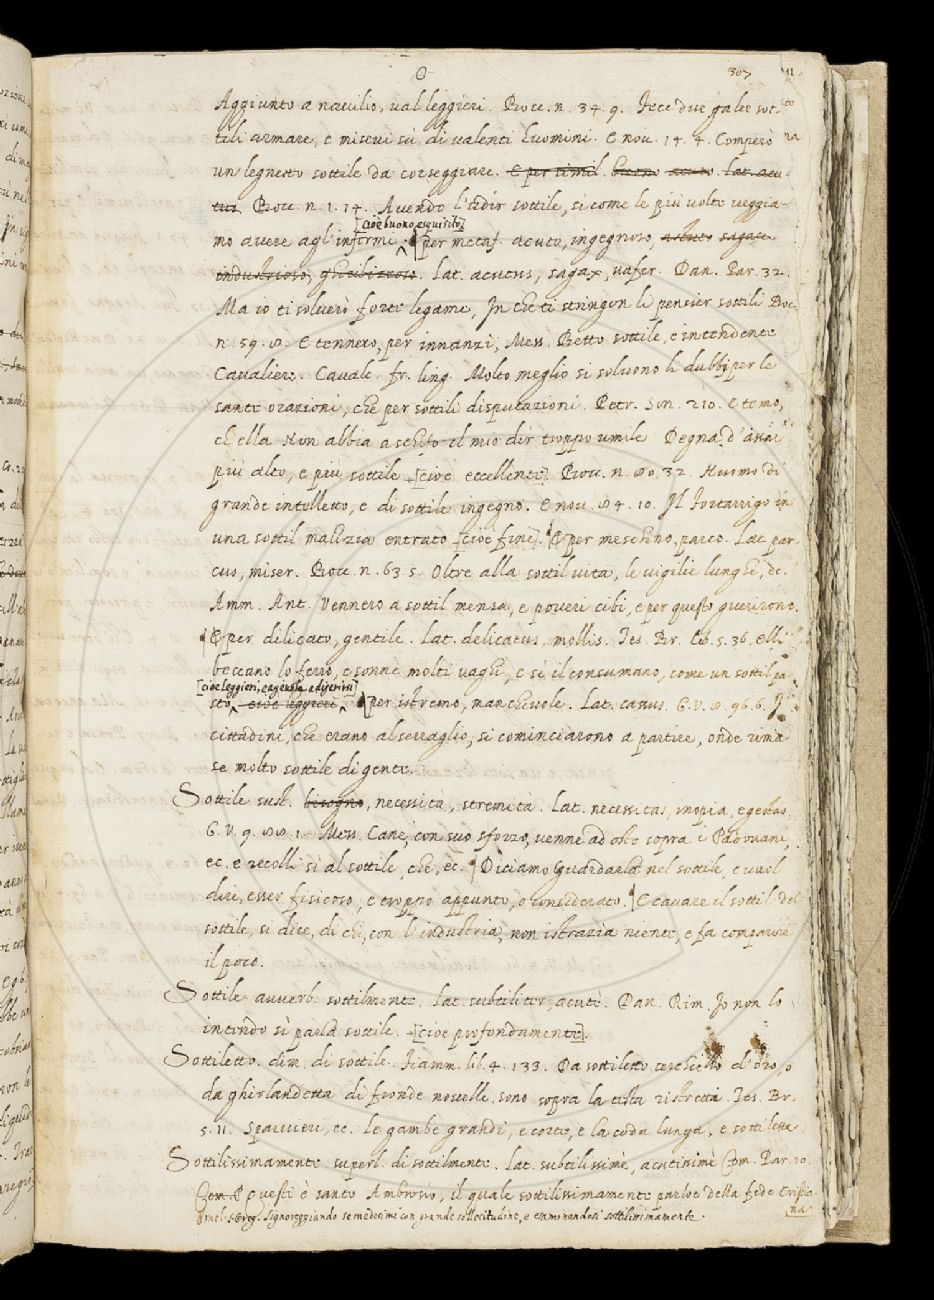 O
307
Aggiunto a navilio, val leggieri. Bocc. n. 34. 9. Fece due galee sot-
tili armare, e misevi sù di valenti huomini. E nov. 14. 4. Comperò
un legnetto sottile da corseggiare. E per simil. buono acuto lat. acu-
tus. Bocc. n. 1. 14. Avendo l'udir sottile, si come le più volte veggia-
[cioè buono, esquisito]
mo avere agl'infermi. E per metaf. acuto, ingegnoso, astuto sagace
industrioso, ghiribizzoso. Lat. acutus, sagax, vafer. Dan. Par. 32.
Ma io ti solverò forte legame, In che ti stringon li pensier sottili Boc.
n. 59. E tennero, per innanzi, Mess. Betto sottile, e intendente
Cavaliere. Cavalc. fr. ling. Molto meglio si solvono li dubbi per le
sante orazioni, che per sottili disputazioni. Petr. Son. 210. E temo,
ch'ella Non abbia a schifo il mio dir troppo umile Degna d'assai
più alto, e più sottile [cioè eccellente] Bocc. n. 32. Huomo di
grande intelletto, e di sottile ingegno. E nov. 84. 10. Il Fortarrigo in
una sottil malizia entrato [cioè fine]. E per meschino, parco. Lat. par-
cus, miser. Bocc. n. 63. 5. Oltre alla sottil vita, le vigilie lunghe, ec.
Amm. Ant. Vennero a sottil mensa, e poveri cibi, e per questo guerirono.
E per delicato, gentile. Lat. delicatus, mollis. Tes. Br. lib. 5. 36. Elli
beccano lo ferro, e sonne molti vaghi, e sì il consumano, come un sottil pa-
[cioè leggieri, e agevole a digerirsi]
sto cioè leggieri, per istremo, manchevole. Lat. cassus. G. V. 8. 96. 6. I
cittadini, che erano al serraglio, si cominciarono a partire, onde rima-
se molto sottile di gente.
Sottile sust. bisogno, necessità, stremità. Lat. necessitas, inopia, egestas
G. V. 9. 88. 1. Mess. Cane, con suo sforzo, venne ad oste sopra i Padovani,
ec. e recolli sì al sottile, che, ec. Diciamo Guardarla nel sottile, e vuol
dire, esser fisicoso, e troppo appunto, o considerato. E cavare il sottil del
sottile, si dice, di chi, con l'industria, non istrazia niente, e fa comparire
il poco.
Sottile avverb. sottilmente. Lat. subtiliter, acutè. Dan. Rim. Io non lo
intendo sì parla sottile. [cioè profondamente].
Sottiletto. dim. di sottile. Fiamm. lib. 4. 133. Da sottiletto cerchiello d'oro, o
da ghirlandetta di fronde novelle sono sopra la testa ristretti. Tes. Br.
5. 11. Sparvieri, ec. Le gambe grandi, e corte, e la coda lunga, e sottiletta
Sottilissimamente superl. di sottilmente. Lat. subtilissimè, acutissimè Com. Par. 10.
Com. Questi è santo Ambrosio, il quale sottilissimamente parloe della fede Cristia
na
Moral. S. Greg. Signoreggiando se medesimi con grande sollecitudine, e esaminandosi sottilissimamente.